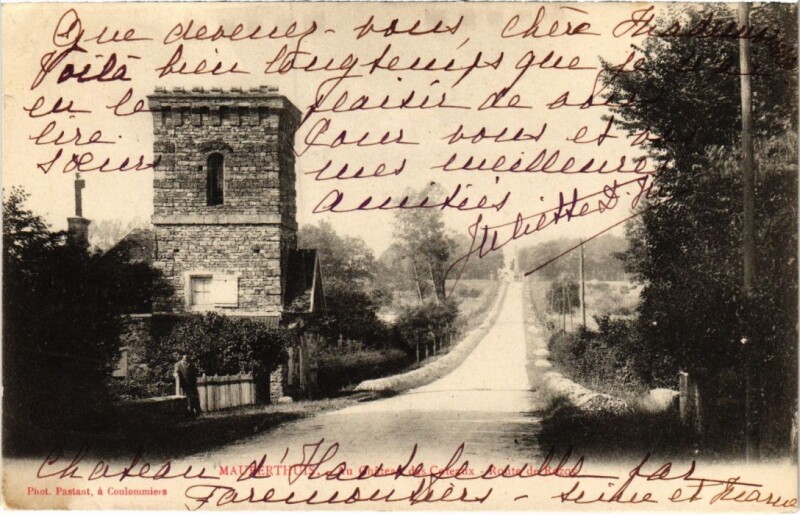 Que devenez-vous, chère Madame
Voilà bien longtemps que je
en le plaisir de vous
lire. Pour vous et vos
sœurs mes meilleures
amitiés
Juliette D.
Chateau d'Hautefeuille par
MAUPERTHUIS. - Au Château des Coteaux - Route de Rozoy
Phot. Pastant, à Coulommiers
Faremoutiers - Seine et Marne